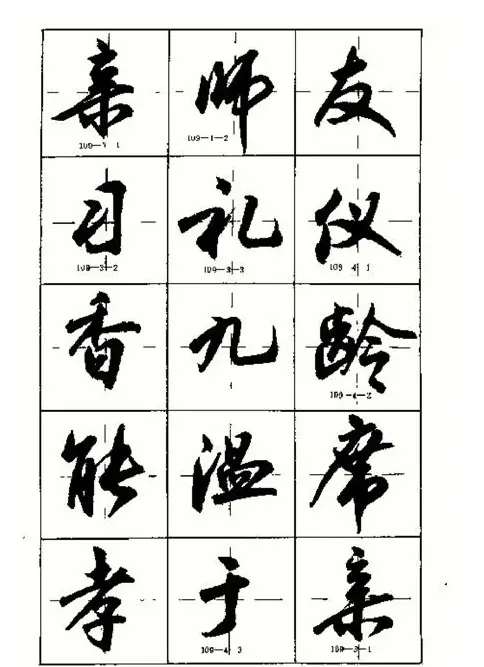 亲师友
109-3-1 109-1-2
习礼仪
109-3-2 109-3-3 109-4-1
香九龄
109-4-2
能温席
孝于亲
109-4-3 109-3-1